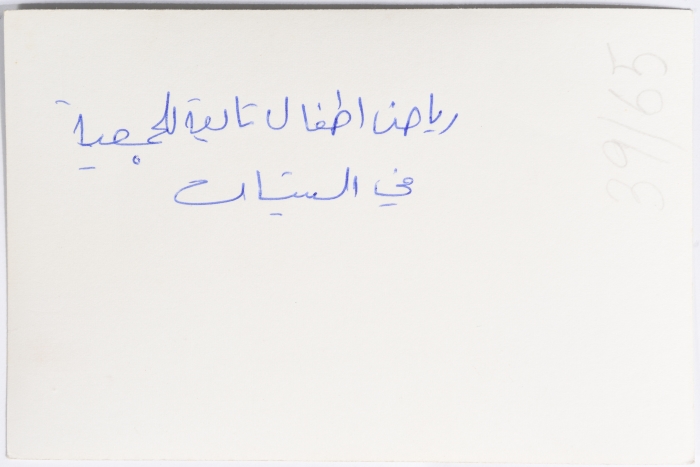 رياض اطفال تابعة للجمعية
في الستينات
39/65